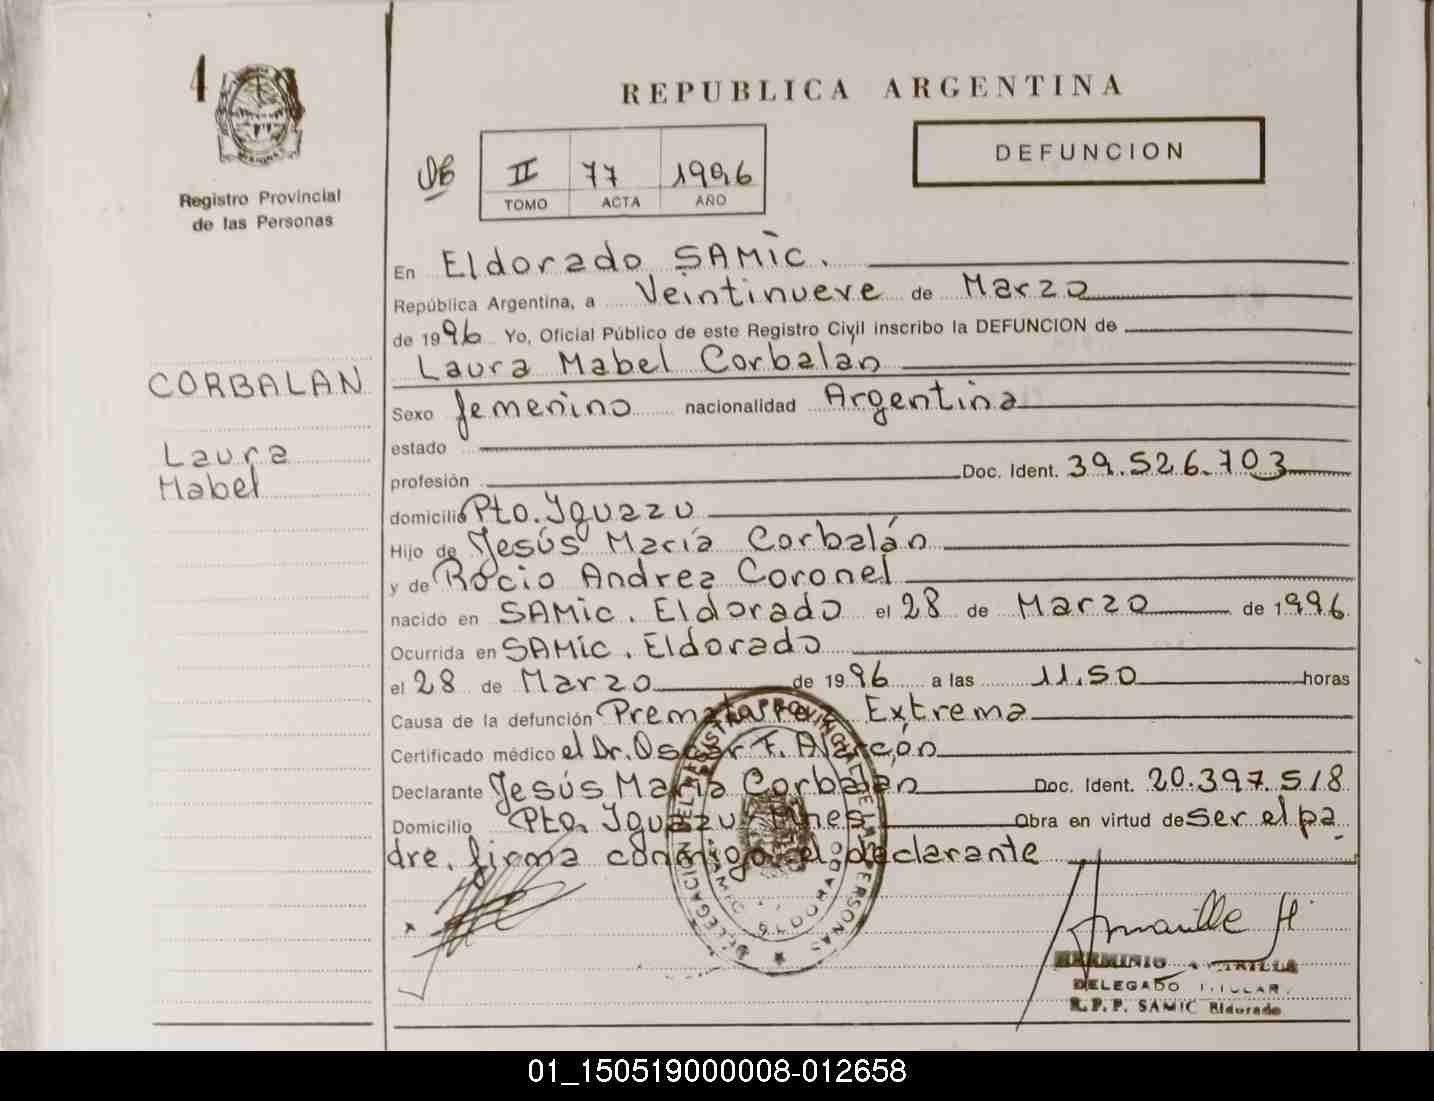 4
Registro Provincial
de las Personas
CORBALAN
Laura
Mabel
REPUBLICA ARGENTINA
DEFUNCION
II 77 1996
TOMO ACTA AÑO
En Eldorado SAMic.
República Argentina, a Veintinueve de Marzo
de 1996 Yo, Oficial Público de este Registro Civil inscribo la DEFUNCION de
Laura Mabel Corbalan
Sexo femenino nacionalidad Argentina
estado
profesión Doc. Ident. 39.526.703
domicilio Pto. Iguazu
Hijo de Jesús María Corbalán
y de Rocio Andrea Coronel
nacido en SAMic. Eldorado el 28 de Marzo de 1996
Ocurrida en SAMic. Eldorado
el 28 de Marzo de 1996 a las 11.50 horas
Causa de la defunción Prematurez Extrema
Certificado médico el Dr. Oscar F. Alarcón
Declarante Jesús María Corbalán Doc. Ident. 20.397.518
Domicilio Pto. Iguazu Mnes Obra en virtud de ser el pa
dre. firma conmigo el declarante
DELEGACION DEL REGISTRO PROVINCIAL DE LAS PERSONAS
SAMIC ELDORADO
HERMINIO
DELEGADO TITULAR
R.P.P. SAMIC Eldorado
01_150519000008-012658